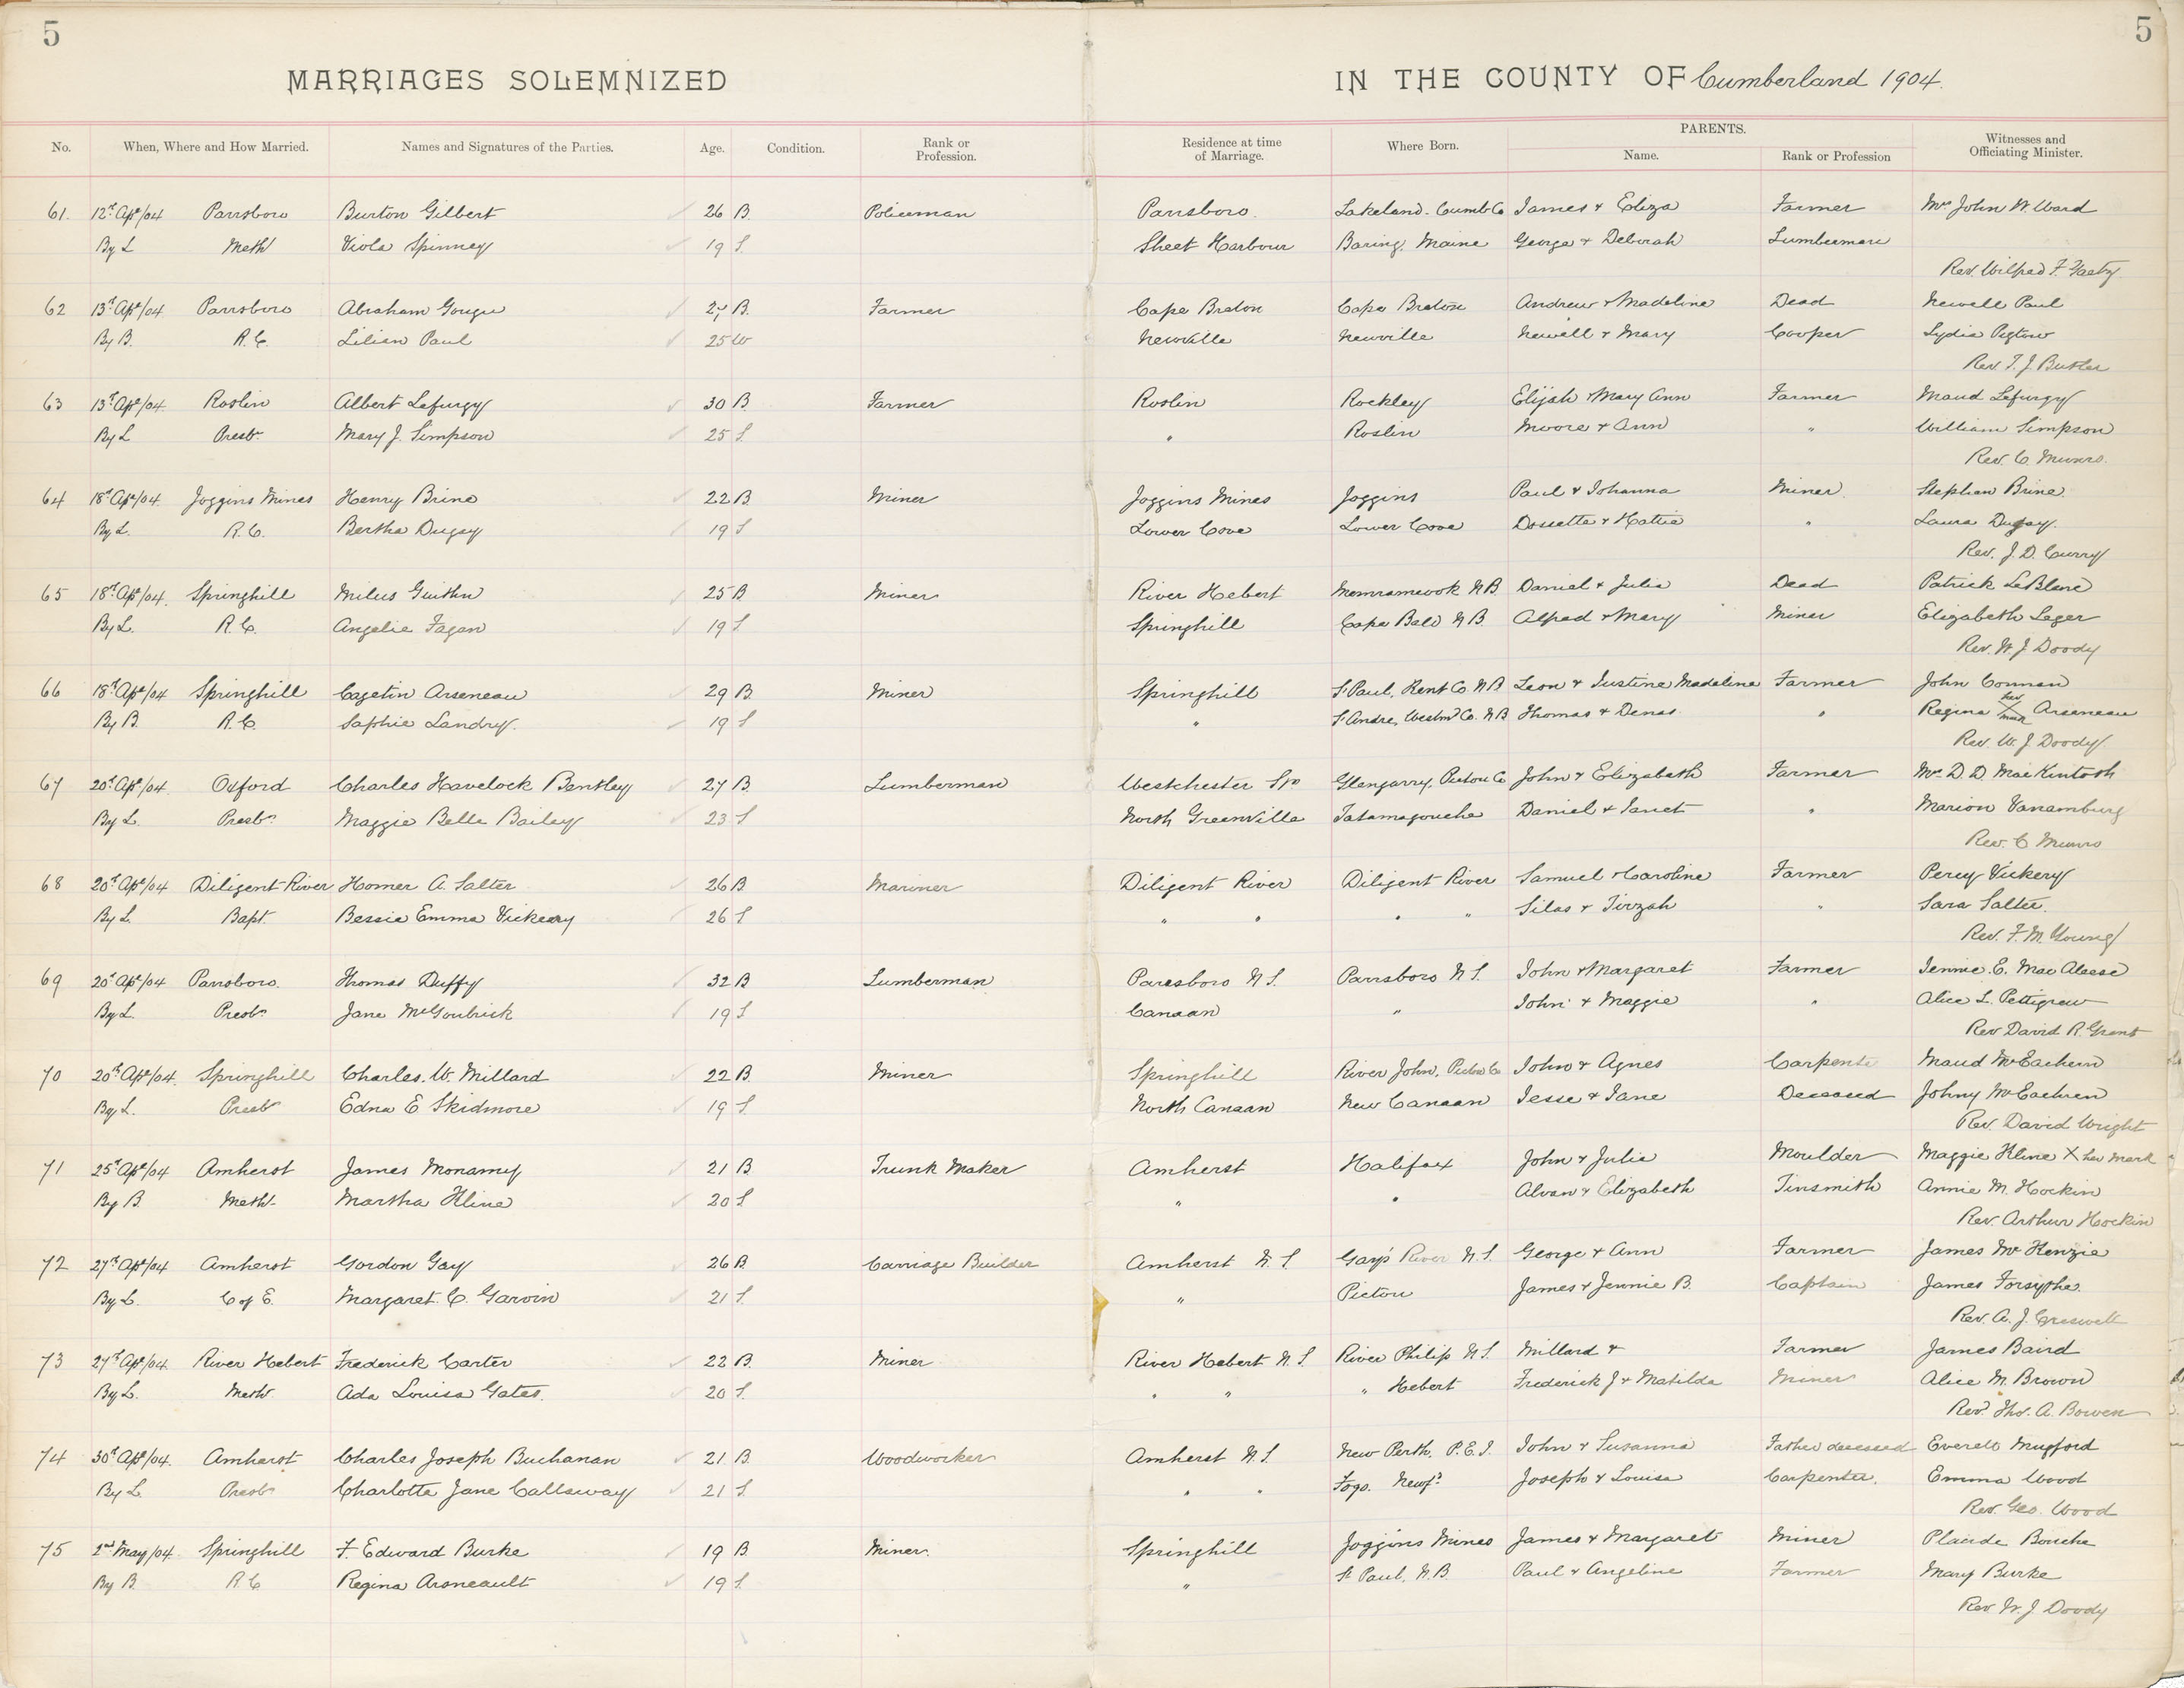 5
5
MARRIAGES SOLEMNIZED IN THE COUNTY OF Cumberland 1904.
No. When, Where and How Married. Names and Signatures of the Parties. Age. Condition. Rank or Profession. Residence at time of Marriage. Where Born. PARENTS. Name. Rank or Profession Witnesses and Officiating Minister.
61. 12th Apl/04 Parrsboro Burton Gilbert 26 B. Policeman Parrsboro. Lakeland. Cumb Co James & Eliza Farmer Mrs John W. Ward
By L Meth Viola Spinney 19 S. Sheet Harbour Baring, Maine George & Deborah Lumberman
Rev. Wilfred F. Gaetz
62 13th Apl/04 Parrsboro Abraham Gougu 27 B. Farmer Cape Breton Cape Breton Andrew & Madeline Dead Newell Paul
By B. R.C. Lilian Paul 25 W Newville Newville Newell & Mary Cooper Lydia
Rev. T. J. Butler
63 13th Apl/04 Roslin Albert Lefurgy 30 B. Farmer Roslin Rockley Elijah & Mary Ann Farmer Maud Lefurgy
By L Presbn Mary J. Simpson 25 S. " Roslin Moore & Ann " William Simpson
Rev. C. Munro.
64 18th Apl/04 Joggins Mines Henry Brine 22 B. Miner Joggins Mines Joggins Paul & Johanna Miner Stephen Brine.
By L. R.C. Bertha Dugay 19 S Lower Cove Lower Cove Dossette & Hattie " Laura Dugay.
Rev. J. D. Curry
65 18th Apl/04. Springhill Milus 25 B Miner River Hebert Memramcook N.B. Daniel & Julia Dead Patrick LeBlanc
By L. R.C. Angelie Fagan 19 S Springhill Cape Bald N.B. Alfred & Mary Miner Elizabeth Leger
Rev. W. J. Doody
66 18th Apl/04 Springhill Cagetin Arseneau 29 B. Miner Springhill St Paul, Kent Co. N.B. Leon & Justine Madeline Farmer John Connan
By B. R.C. Saphie Landry. 19 S " St Andre, Westmd Co. N.B. Thomas & Denas " Regina her X mark Arseneau
Rev. W. J. Doody
67 20th Apl/04. Oxford Charles Havelock Bentley 27 B. Lumberman Westchester Stn Glengarry, Pictou Co John & Elizabeth Farmer Mr. D. D. MacKintosh
By L. Presbn Maggie Belle Bailey 23 S North Greenville Tatamagouche Daniel & Janet " Marion Vanamburg
Rev. C Munro
68 20th Apl/04 Diligent River Homer A. Salter 26 B Mariner Diligent River Diligent River Samuel & Caroline Farmer Percy Vickery
By L Bapt. Bessie Emma Vickeary 26 S " " " " Silas & Tirzah " Sara Salter.
Rev. F. M. Young
69 20th Apl/04 Parrsboro. Thomas Duffy 32 B Lumberman Parrsboro N.S. Parrsboro N.S. John & Margaret Farmer Jennie. E. MacAleese
By L. Presbn Jane McGoubrick 19 S Canaan " John & Maggie " Alice L. Pettigrew
Rev David R. Grant
70 20th Apl/04. Springhill Charles. W. Millard 22 B. Miner Springhill River John, Pictou Co John & Agnes Carpenter Maud McEachern
By L. Presbn Edna E Skidmore 19 S. North Canaan New Canaan Jesse & Jane Deceased Johny McEachren
Rev. David Wright
71 25th Apl/04 Amherst James Monamy 21 B Trunk Maker Amherst Halifax John & Julia Moulder Maggie Kline X her mark
By B. Meth. Martha Kline 20 S. " " Alvan & Elizabeth Tinsmith Annie M. Hockin
Rev. Arthur Hockin
72 27th Apl/04 Amherst Gordon Gay 26 B. Carriage Builder Amherst N.S Gay's River N.S. George & Ann Farmer James McKenzie
By L. C of E. Margaret. C. Garvin 21 S. " Pictou James & Jennie B. Captain James Forsythe.
Rev. A. J. Creswell
73 27th Apl/04. River Hebert Frederick Carter 22 B. Miner River Hebert N.S. River Philip N.S. Millard & Farmer James Baird
By L. Meth. Ada Louisa Gates. 20 S. " " " Hebert Frederick J & Matilda Miner Alice M. Brown
Revd. Thos. A. Bowen
74 30th Apl/04. Amherst Charles Joseph Buchanan 21 B. Woodworker Amherst N.S New Perth, P.E.I. John & Susanna Father deceased Everett Mugford
By L Presbn Charlotte Jane Callaway 21 S. " " Fogo. Newfd. Joseph & Louisa Carpenter. Emma Wood
Rev. Geo. Wood
75 2nd May/04. Springhill F. Edward Burke 19 B. Miner. Springhill Joggins Mines James & Margaret Miner Placide Bouche
By B. R.C Regina Arsneault 19 S. " St Paul, N.B. Paul & Angeline Farmer Mary Burke
Rev. W. J. Doody